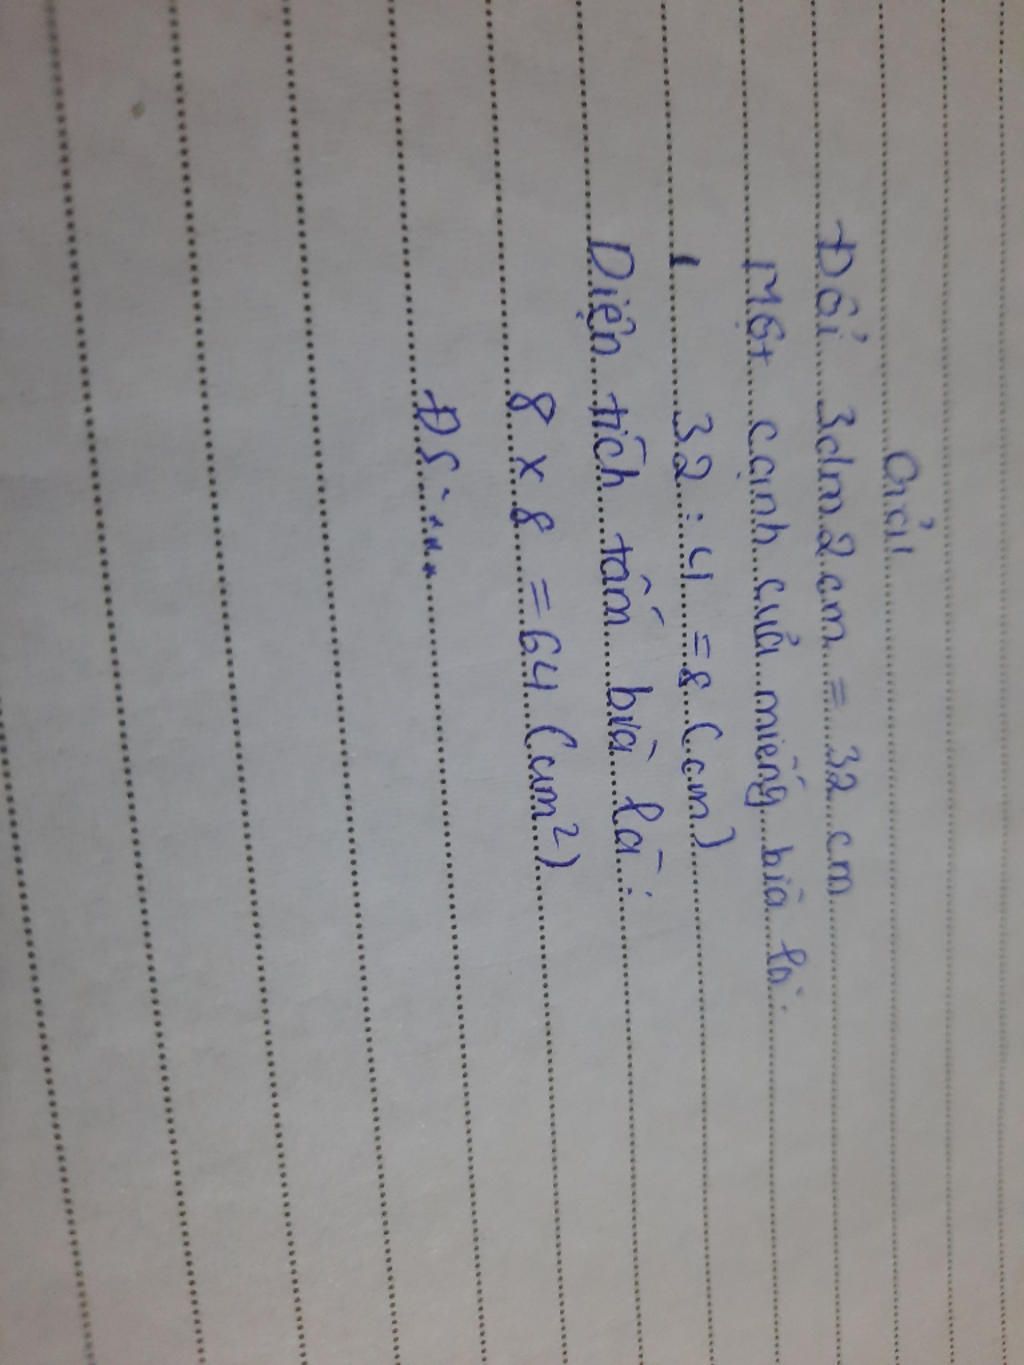 Giải
Đổi 3dm2cm = 32 cm
Một cạnh của miếng bìa là:
32 : 4 = 8 (cm)
Diện tích tấm bìa là:
8 x 8 = 64 (cm²)
ĐS:...